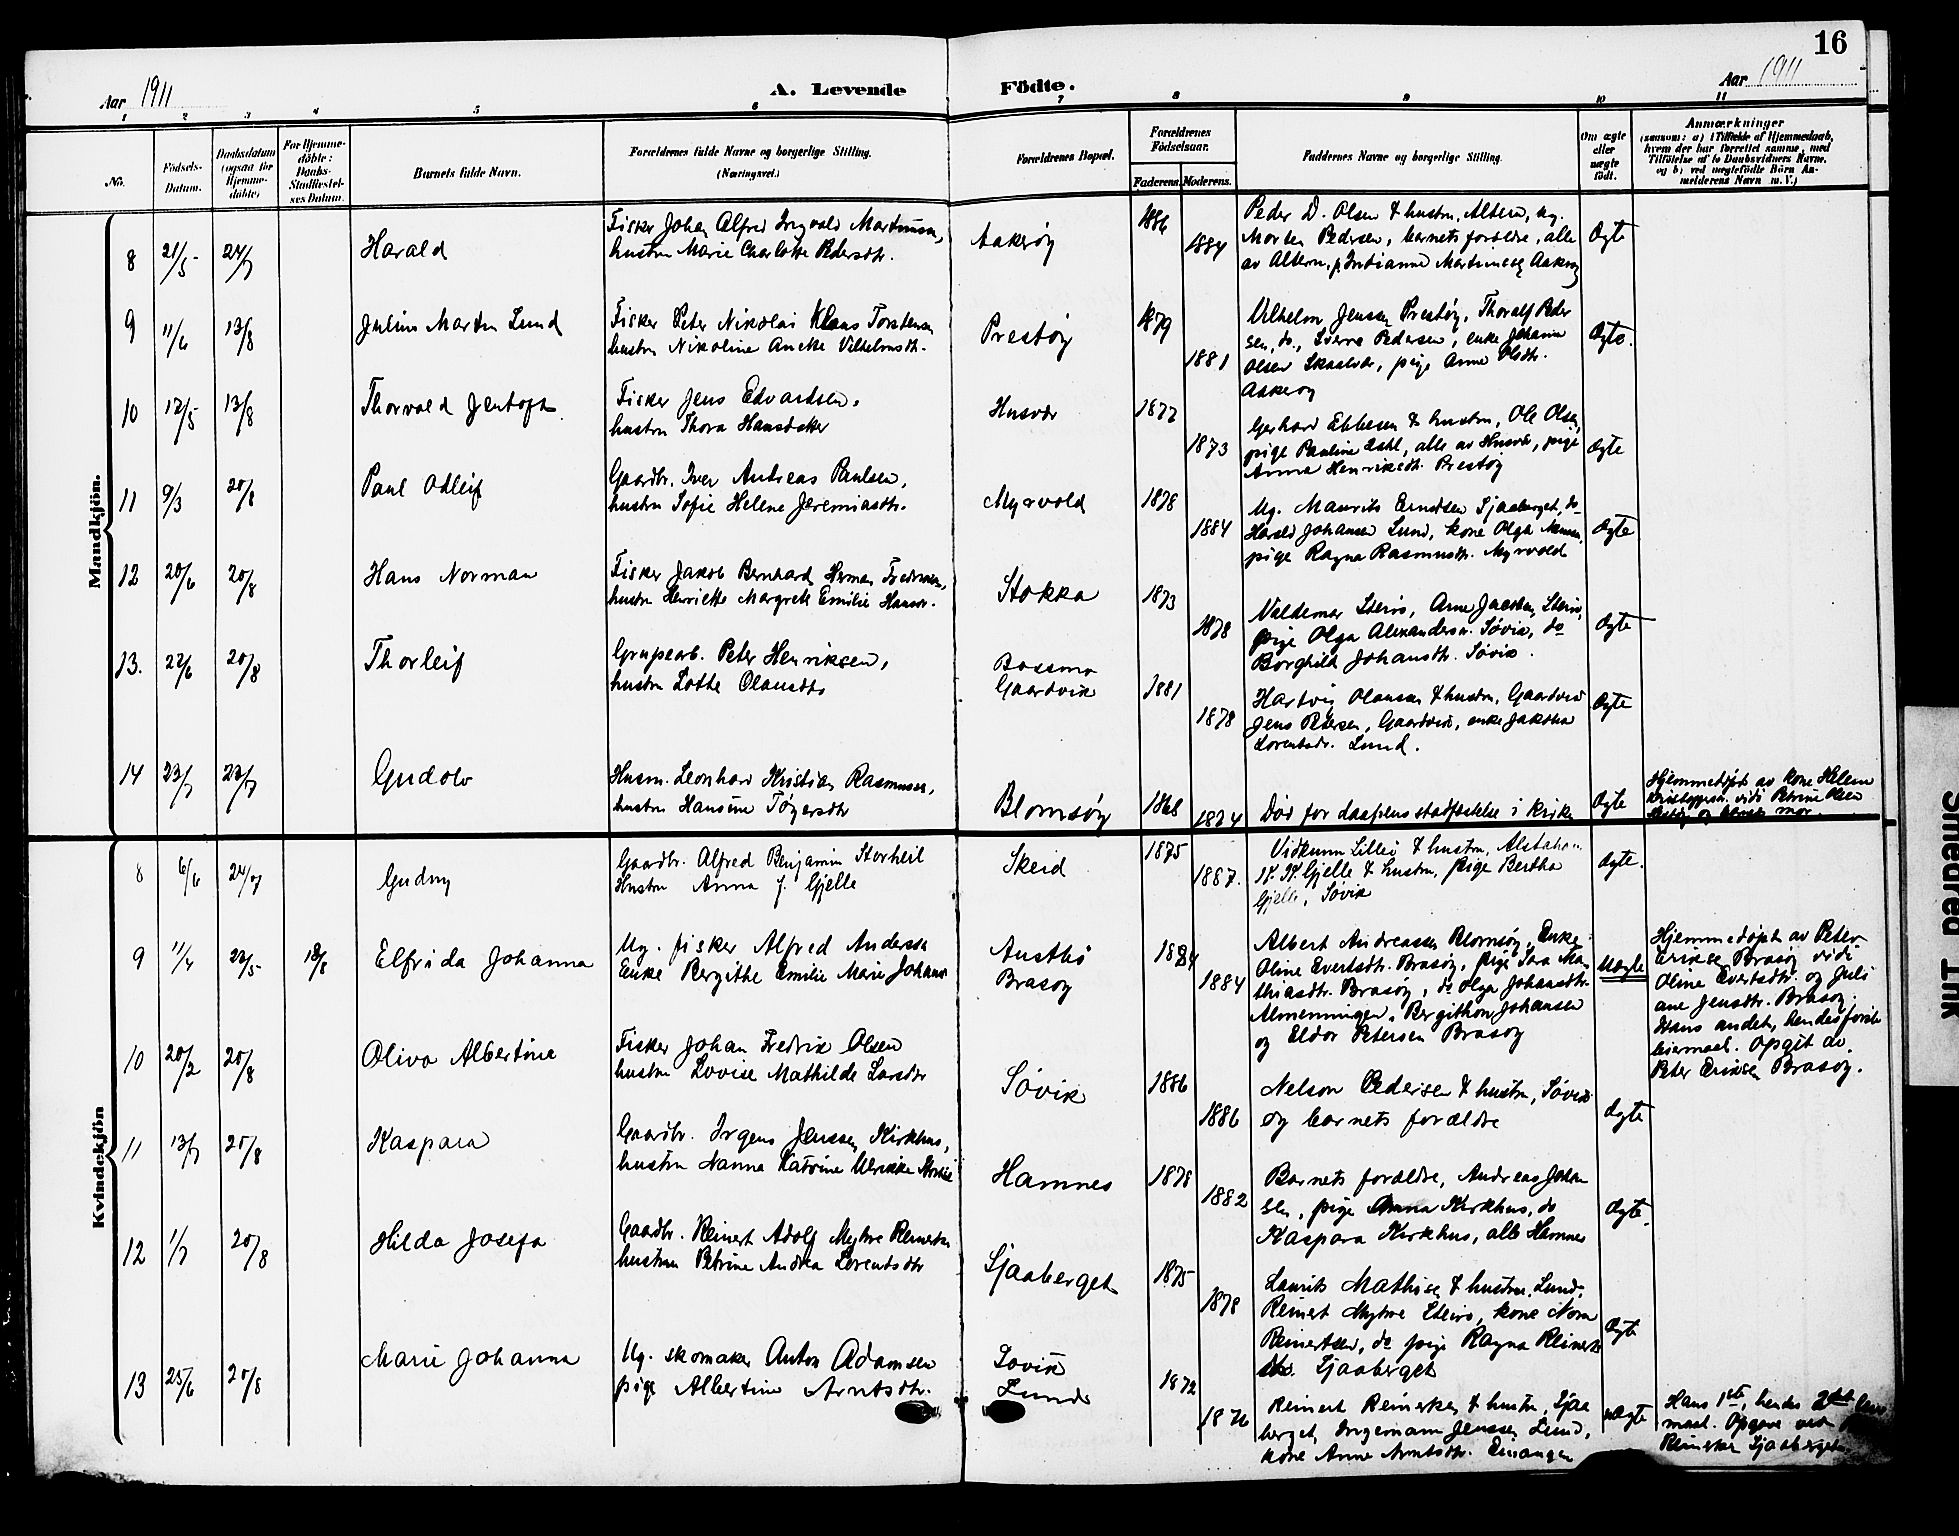 16
Aar 1911
A. Levende Födte.
Aar 1911
1 2 3 4 5 6 7 8 9 10 11
No.
Födsels-Datum.
Daabsdatum (ogsaa for Hjemme-döbte)
For Hjemme-döbte: Daabs-Stadfæstel-ses Datum.
Barnets fulde Navn.
Forældrenes fulde Navne og borgerlige Stilling. (Næringsvei.)
Forældrenes Bopæl.
Forældrenes Födselsaar.
Faderens. Moderens.
Faddernes Navne og borgerlige Stilling.
Om ægte eller uægte födt.
Anmærkninger
(saasom: a) i Tilfælde af Hjemmedaab, hvem der har forrettet samme, med Tilföielse af to Daabsvidners Navne, og b) ved uægtefödte Börn An-melderens Navn m. V.)
Mandkjön.
8 21/5 24/7 Harald
Fisker Johan Alfred Ingvald Martinusen,
hustru Marie Charlotte Pedersdtr.
Aakerøy 1886 1884
Peder D. Olsen & hustru, Altern, ug.
Morten Pedersen, barnets forældre, alle
av Altern, p. Indianna Aakerøy
Ægte
9 11/6 13/8 Julius Martin Lund
Fisker Peter Nikolai Klaus Torstensen
hustru Nikoline Ancke Vilhelmsdtr.
Prestøy 1879 1881
Vilhelm Jensen Prestøy, Thoralf Peder
sen, do., Sverre Pedersen, enke Johanna
Olsen Skaalvær, pige Anne Olsdtr.
Aakerøy
Ægte.
10 12/5 13/8 Thorvald Jentoft
Fisker Jens Edvardsen,
hustru Thora Hansdatter
Husvær 1877 1873
Gerhard Ebbesen & hustru, Ole Olsen,
pige Pauline Dahl, alle av Husvær, pige
Anna Henriksdtr. Prestøy
Ægte
11 9/3 20/8 Paul Odleif
Gaardbr. Iver Andreas Paulsen,
hustru Sofie Helene Jeremiasdtr.
Myrvold 1878 1884
Ug. Maurits Ernstsen Sjaaberget, do
Harald Johansen Lund, kone Olga
pige Ragna Rasmusdtr. Myrvold
Ægte
12 20/6 20/8 Hans Norman
Fisker Jakob Bernhard Herman Fredriksen,
hustru Henriette Margrete Emilie Hansdr.
Stokka 1873 1878
Valdemar Steiro, Arne Jacobsen, Steiro,
pige Olga Alexandersen Søvik, do
Borghild Johansdtr. Søvik.
Ægte
13. 22/6 20/8 Thorleif
Grupearb. Peter Henriksen,
hustru Lotte Olausdtr
Bossmo
Gaardvik 1881 1878
Hartvig Olausen & hustru, Gaardvik
Jens Petersen, Gaardvik, enke Jakobea
Lorentsdr. Lund.
Ægte
14 23/7 23/7 Gudolv
Husm. Leonhard Kristian Rasmussen,
hustru Hansine Tøgersdtr
Blomsøy 1868 1874
Død før daapens stadfæstelse i kirke
Ægte
Hjemmedøpt av kone Helene
Kristoffersdr. vidi Petrine Olsen
og barnets mor.
Kvindekjön
8 6/6 24/7 Gudny
Gaardbr. Alfred Benjamin Storheil
Hustru Anna J. Gjelle
Skeid 1875 1887.
Vidkunn Lillei & hustru, Alstahaug
K. K. Gjelle & hustru, pige Bertha
Gjelle, Søvik
Ægte.
9 11/4 23/5 13/8 Elfrida Johanna
Ug. fisker Alfred Andersen
Enke Bergithe Emilie Marie Johans
Austbø
Brasøy 1884 1884
Albert Andreassen Blomsøy, Enke
Oline Evertsdtr. Brasøy, pige Sara Ma
thiasdtr. Brasøy, do Olga Johansdtr.
Almenningen, Bergithon Johansen
og Eldor Petersen Brasøy
Uægte
Hjemmedøpt av Peter
Eriksen Brasøy vidi
Oline Evertsdtr. og Juli
ane Jensdtr. Brasøy.
Hans andet, hendes første
leiermaal. Opgit av
Peter Eriksen Brasøy.
10 20/2 20/8 Oliva Albertine
Fisker Johan Fredrik Olsen
hustru Lovise Mathilde Larsdtr
Søvik 1886 1886
Nelson Pedersen & hustru, Søvik
og barnets forældre
Ægte
11 13/7 20/8 Kaspara
Gaardbr. Jrgens Jenssen Kirkhus,
hustru Nanna Katrine Ulrikke
Hamnes 1878 1882
Barnets forældre, Andreas Johan
sen, pige Anna Kirkhus, do
Kaspara Kirkhus, alle Hamnes
Ægte.
12 1/7 20/8 Hilda Josefa
Gaardbr. Reinert Adolf Myhre Reinertsen
hustru Petrine Andrea Lorentsdtr
Sjaaberget 1875 1878
Laurits Mathisen & hustru, Lund,
Reinert Myhre Steiro, kone Nora
Reinertsen, do pige Ragna Reinerts
dtr. Sjaaberget
Ægte
13 25/6 20/8 Marie Johanna
Ug. skomaker Anton Adamsen
pige Albertine Arntsdtr.
Søvik
Lund 1872 1876
Reinert Reinertsen & hustru, Sjaa
berget, Ingemann Jenssen Lund,
kone Anne Arntsdtr. Einangen
uÆgte
Hans 1ste, hendes 2det leier
maal. Opgave ved
Reinertsen Sjaaberget